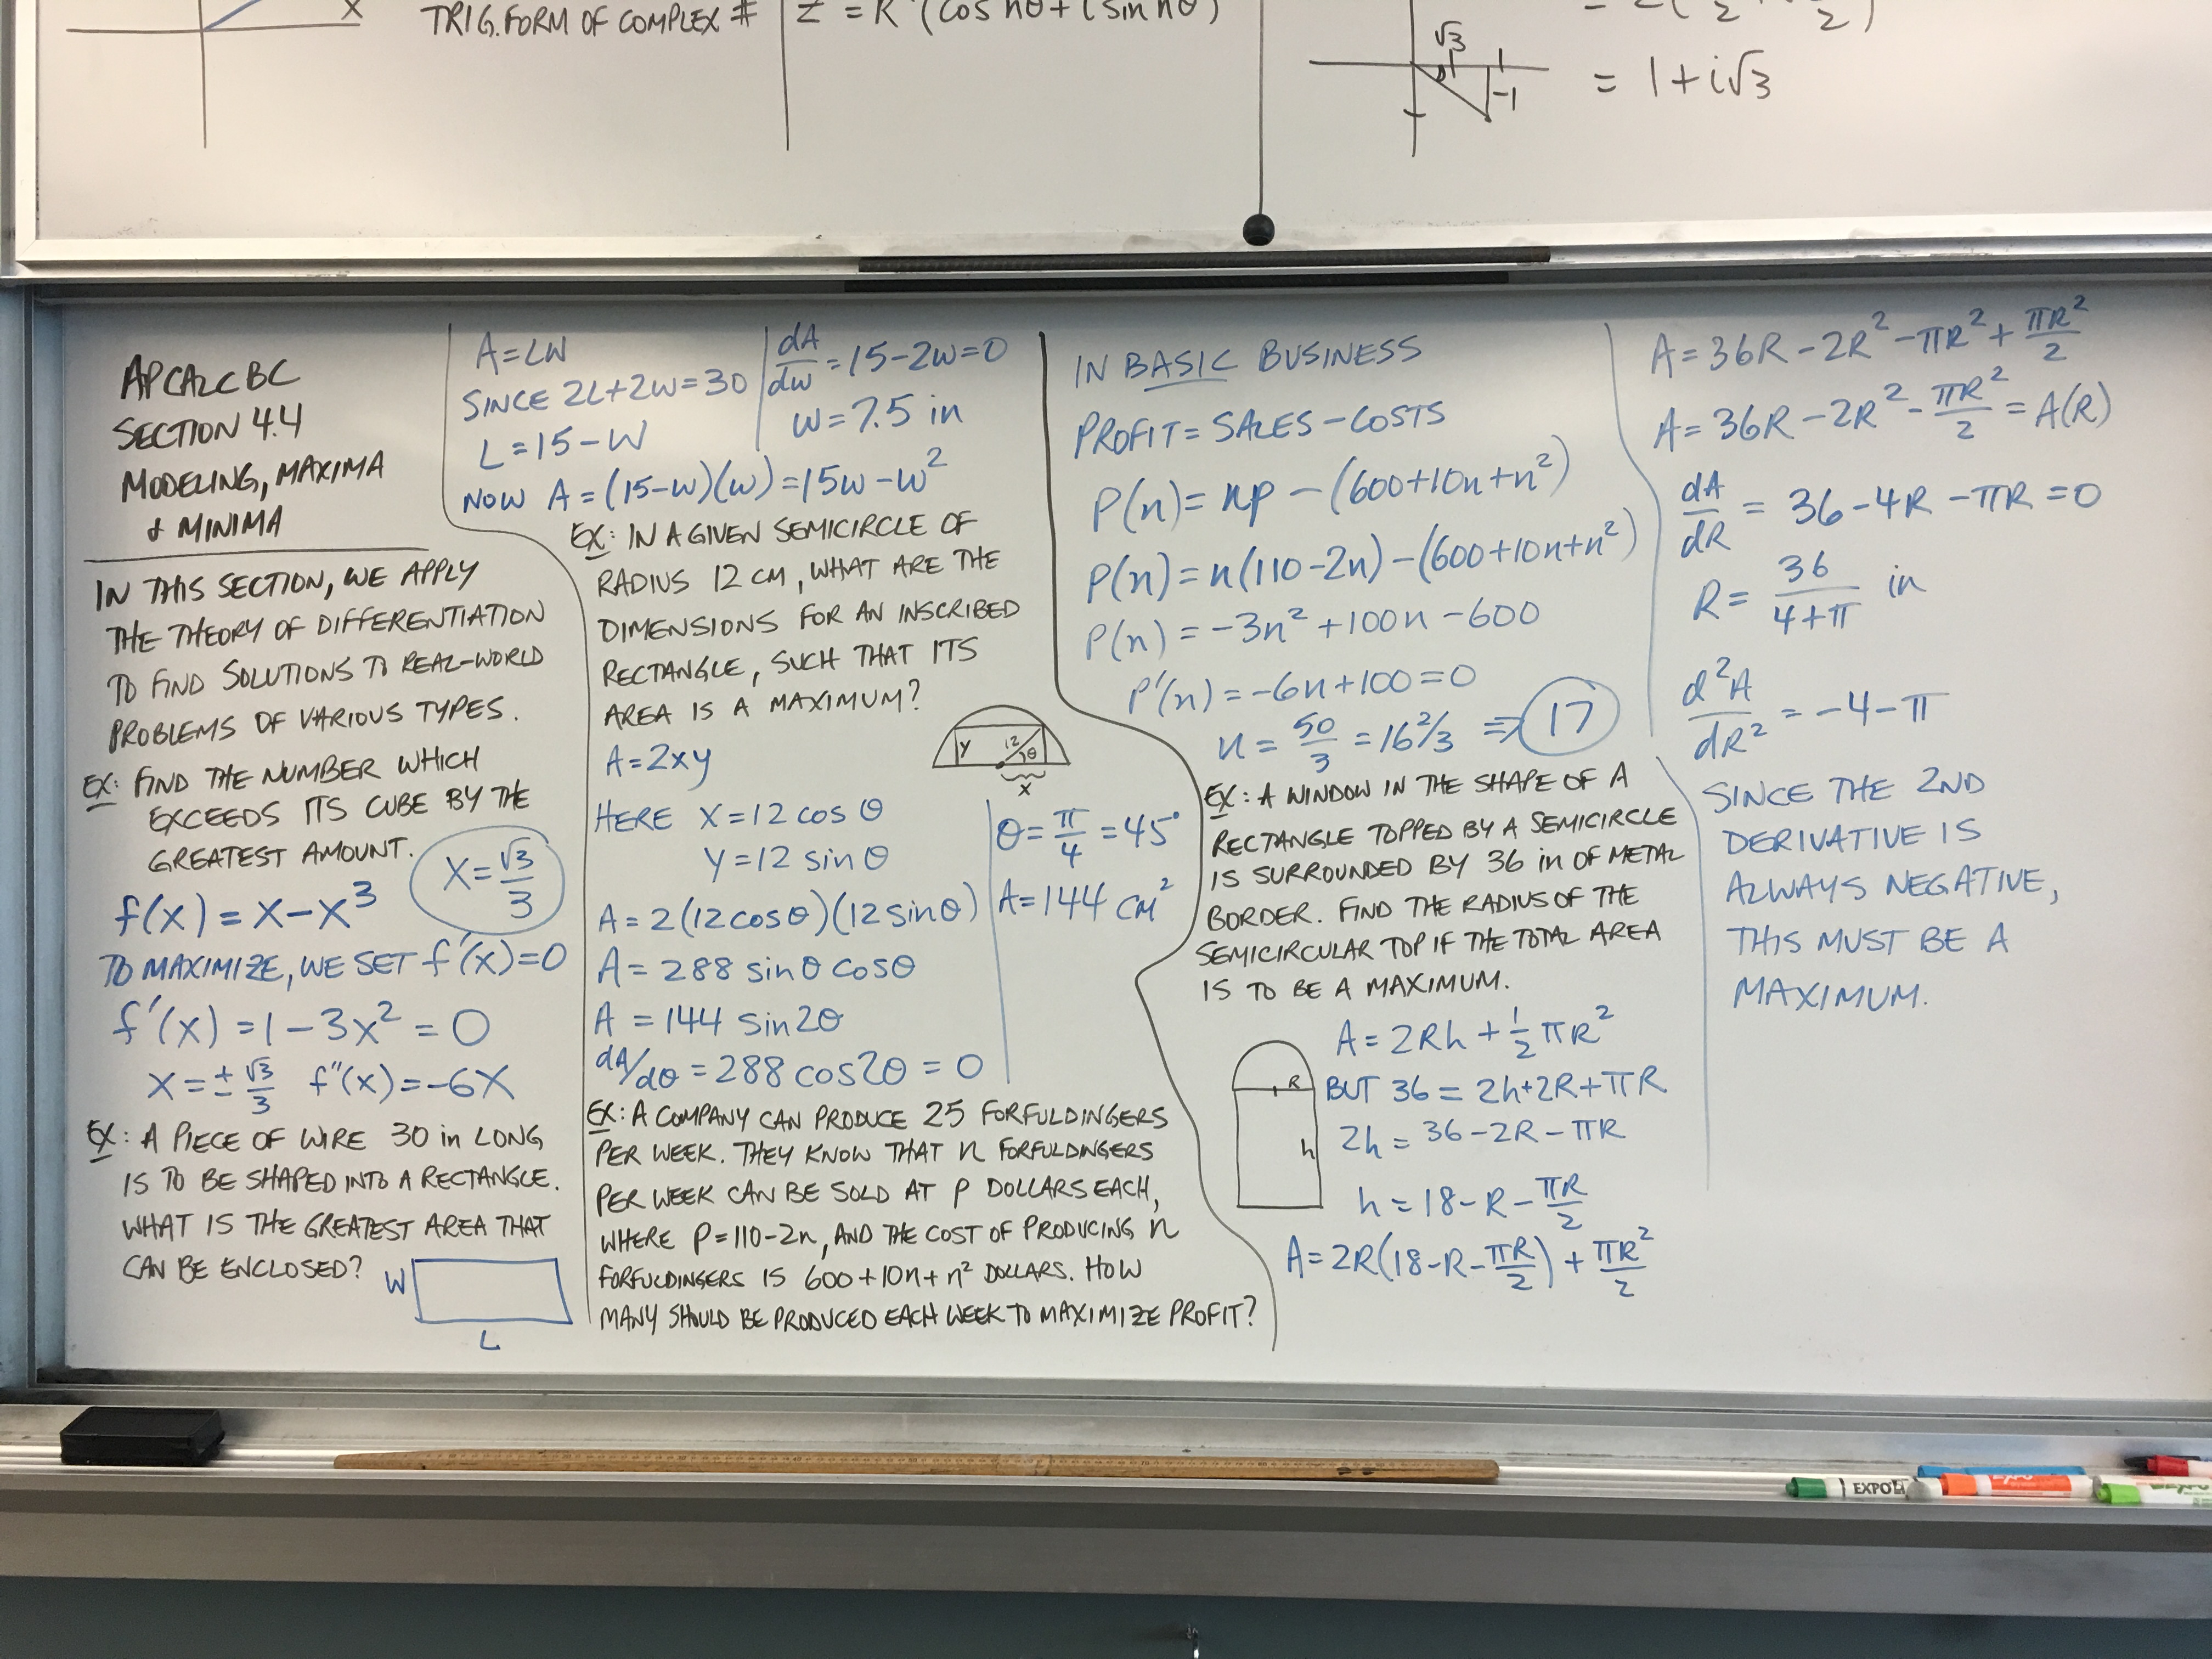 X
TRIG. FORM OF COMPLEX #
(cos nθ + i sin nθ)
√3
-1
= 1+i√3
AP CALC BC
SECTION 4.4
MODELING, MAXIMA
& MINIMA
IN THIS SECTION, WE APPLY
THE THEORY OF DIFFERENTIATION
TO FIND SOLUTIONS TO REAL-WORLD
PROBLEMS OF VARIOUS TYPES.
EX: FIND THE NUMBER WHICH
EXCEEDS ITS CUBE BY THE
GREATEST AMOUNT.
X = √3/3
f(x) = x-x³
TO MAXIMIZE, WE SET f'(x)=0
f'(x) = 1-3x² = 0
X = ± √3/3 f"(x) = -6X
EX: A PIECE OF WIRE 30 in LONG
IS TO BE SHAPED INTO A RECTANGLE.
WHAT IS THE GREATEST AREA THAT
CAN BE ENCLOSED?
W
L
A = LW
SINCE 2L+2W=30
L = 15-W
dA/dW = 15-2W=0
W = 7.5 in
NOW A = (15-W)(W) = 15W-W²
EX: IN A GIVEN SEMICIRCLE OF
RADIUS 12 CM, WHAT ARE THE
DIMENSIONS FOR AN INSCRIBED
RECTANGLE, SUCH THAT ITS
AREA IS A MAXIMUM?
Y 12 θ
X
A = 2xy
HERE X = 12 cos θ
Y = 12 sin θ
A = 2(12cosθ)(12sinθ)
A = 288 sinθ cosθ
A = 144 sin2θ
dA/dθ = 288 cos2θ = 0
θ = π/4 = 45°
A = 144 cm²
EX: A COMPANY CAN PRODUCE 25 FORFULDINGERS
PER WEEK. THEY KNOW THAT n FORFULDINGERS
PER WEEK CAN BE SOLD AT P DOLLARS EACH,
WHERE P=110-2n, AND THE COST OF PRODUCING n
FORFULDINGERS IS 600+10n+n² DOLLARS. HOW
MANY SHOULD BE PRODUCED EACH WEEK TO MAXIMIZE PROFIT?
IN BASIC BUSINESS
PROFIT = SALES - COSTS
P(n) = np - (600+10n+n²)
P(n) = n(110-2n) - (600+10n+n²)
P(n) = -3n² + 100n - 600
P'(n) = -6n+100 = 0
n = 50/3 = 16 2/3 ⇒ 17
EX: A WINDOW IN THE SHAPE OF A
RECTANGLE TOPPED BY A SEMICIRCLE
IS SURROUNDED BY 36 in OF METAL
BORDER. FIND THE RADIUS OF THE
SEMICIRCULAR TOP IF THE TOTAL AREA
IS TO BE A MAXIMUM.
R
h
A = 2Rh + 1/2 πR²
BUT 36 = 2h+2R+πR
2h = 36-2R-πR
h = 18-R-πR/2
A = 2R(18-R-πR/2) + πR²/2
A = 36R-2R²-πR²+πR²/2
A = 36R-2R²-πR²/2 = A(R)
dA/dR = 36-4R-πR = 0
R = 36/4+π in
d²A/dR² = -4-π
SINCE THE 2ND
DERIVATIVE IS
ALWAYS NEGATIVE,
THIS MUST BE A
MAXIMUM.
EXPO
EXPO